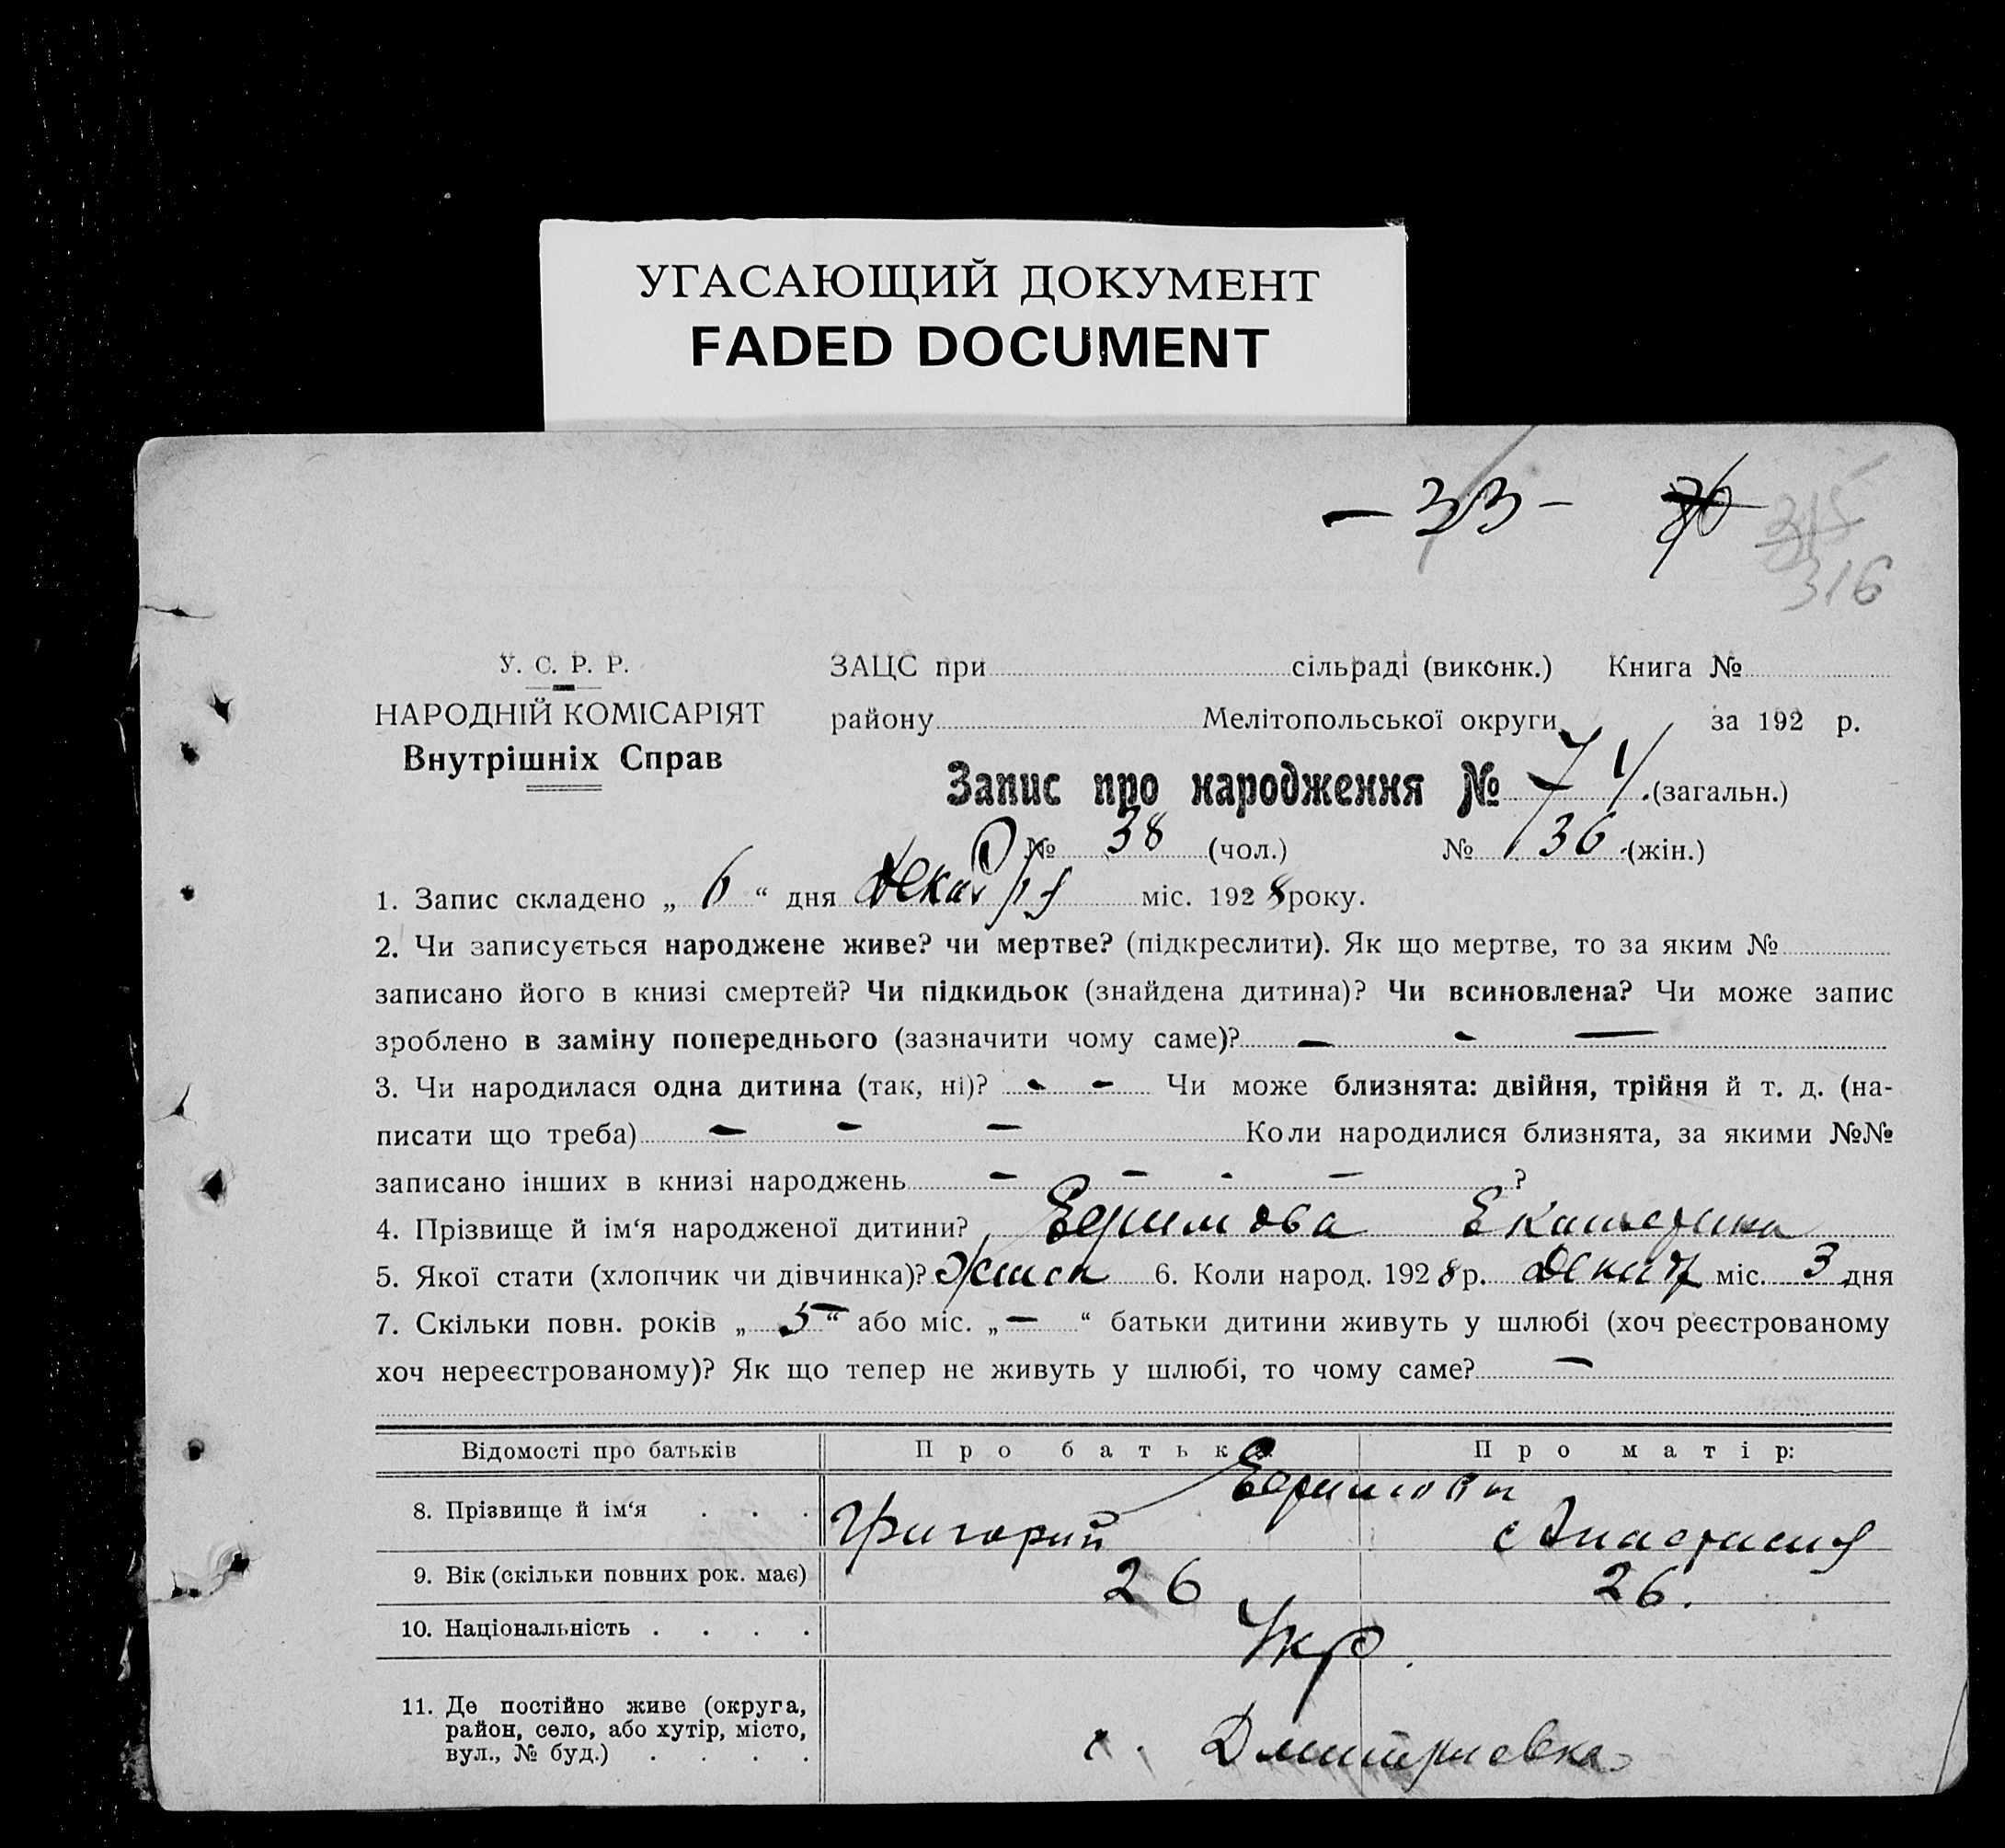 УГАСАЮЩИЙ ДОКУМЕНТ
FADED DOCUMENT
— 33 —
315
316
У. С. Р. Р.
НАРОДНІЙ КОМІСАРІЯТ
Внутрішніх Справ
ЗАЦС при сільраді (виконк.) Книга №
району Мелітопольської округи за 192 р.
Запис про народження № 74 (загальн.)
№ 38 (чол.) № 36 (жін.)
1. Запис складено „ 6 “ дня Декабря міс. 1928 року.
2. Чи записується народжене живе? чи мертве? (підкреслити). Як що мертве, то за яким №
записано його в книзі смертей? Чи підкидьок (знайдена дитина)? Чи всиновлена? Чи може запис
зроблено в заміну попереднього (зазначити чому саме)? — - —
3. Чи народилася одна дитина (так, ні)? - - Чи може близнята: двійня, трійня й т. д. (на-
писати що треба) — - — Коли народилися близнята, за якими №№
записано інших в книзі народжень - - - - ?
4. Прізвище й ім‘я народженої дитини? Ефимова Екатерина
5. Якої стати (хлопчик чи дівчинка)? Женск 6. Коли народ. 1928 р. Декаб міс. 3 дня
7. Скільки повн. років „ 5 “ або міс. „ — “ батьки дитини живуть у шлюбі (хоч реєстрованому
хоч нереєстрованому)? Як що тепер не живуть у шлюбі, то чому саме? —
Відомості про батьків Про батьк Про матір:
8. Прізвище й ім‘я . . . Ефимовы
Григорий Анастасия
9. Вік (скільки повних рок. має) 26 26.
10. Національність . . . . Укр.
11. Де постійно живе (округа,
район, село, або хутір, місто,
вул., № буд.) . . . . с. Дмитриевка